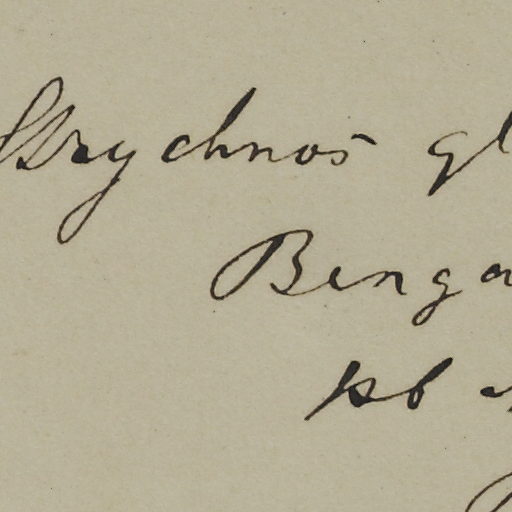 Strychnos gl
Benga